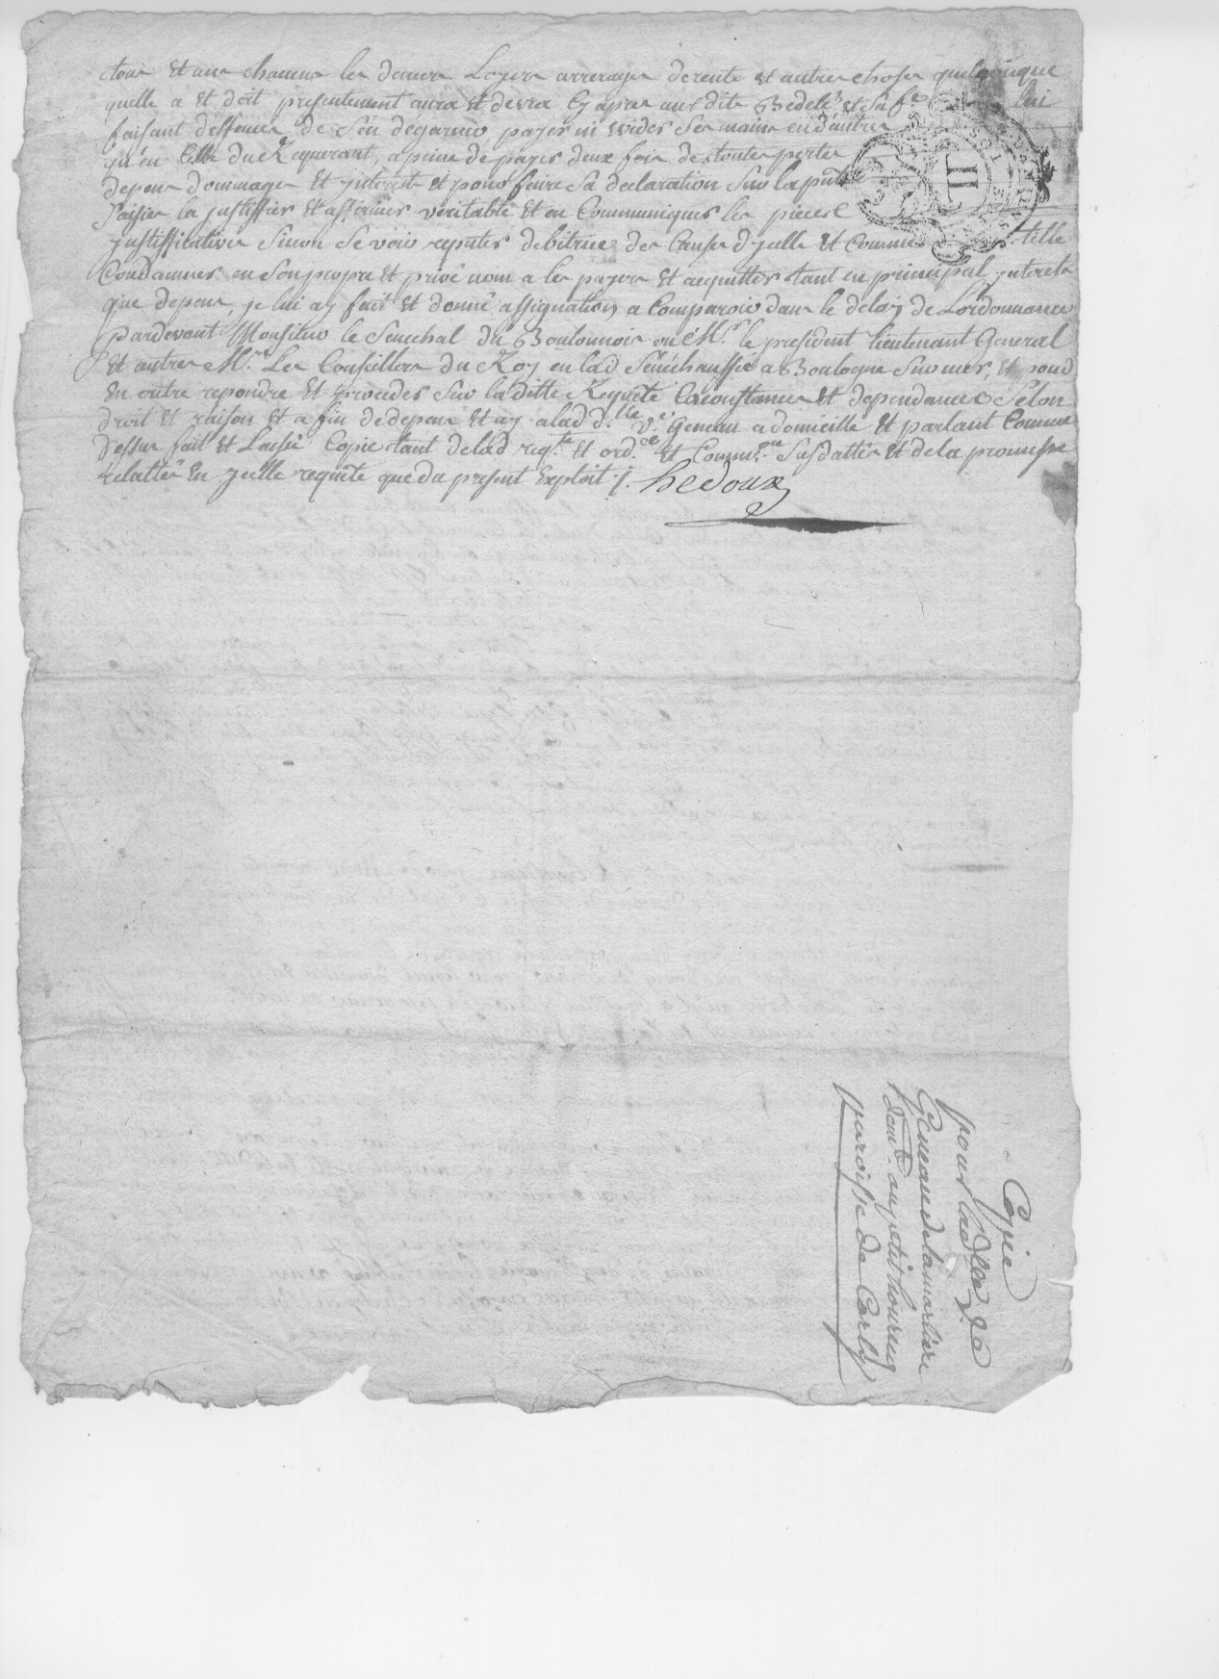 tous et uns chacuns les deniers Loyers arrerages de rente et autres choses quelquonque
quelle a et doit presentement aura et devra Cy apres aux dits Bedelé et sa fe lui
faisant deffences de s'en degarnir payer ni vuider ses mains en d'autres
qu'en Celle du Requerant, a peine de payer deux fois de toutes pertes
depens dommages Et jnterests et pour faire sa declaration sur la pnte
Saisie la justiffier et affirmer veritable et en Communiquer les pieces
justifficatives sinon se voir reputer debitrice des Causes d'jcelle et Comme telle
Condamner en son propre et privé nom a les payer et acquitter tant en principal, jnterets
que depens, je lui ay fait et donné assignation a Comparoir dans le delay de Lordonnance
pardevant Monsieur le Senechal du Boulonnois ou Mr. le president lieutenant General
et autres Mrs. Les Conseillers du Roy en lad Sénéchaussée a Boulogne sur mer, et pour
en outre repondre et proceder sur la ditte Requete Circonstances et dependances Selon
droit et raison et a fin de depens et ay a lad d.lle ve. Geneau a domicille et parlant Comme
dessus fait et Laissé Copie tant de lad reqte. et ord.ce et Comm.on susdattés et de la promesse
relattée En jcelle requete que du present Exploit /.
Copie
pour lad dlle ve
Geneau de la marliere
demte. au petit houreq
paroisse de Carly